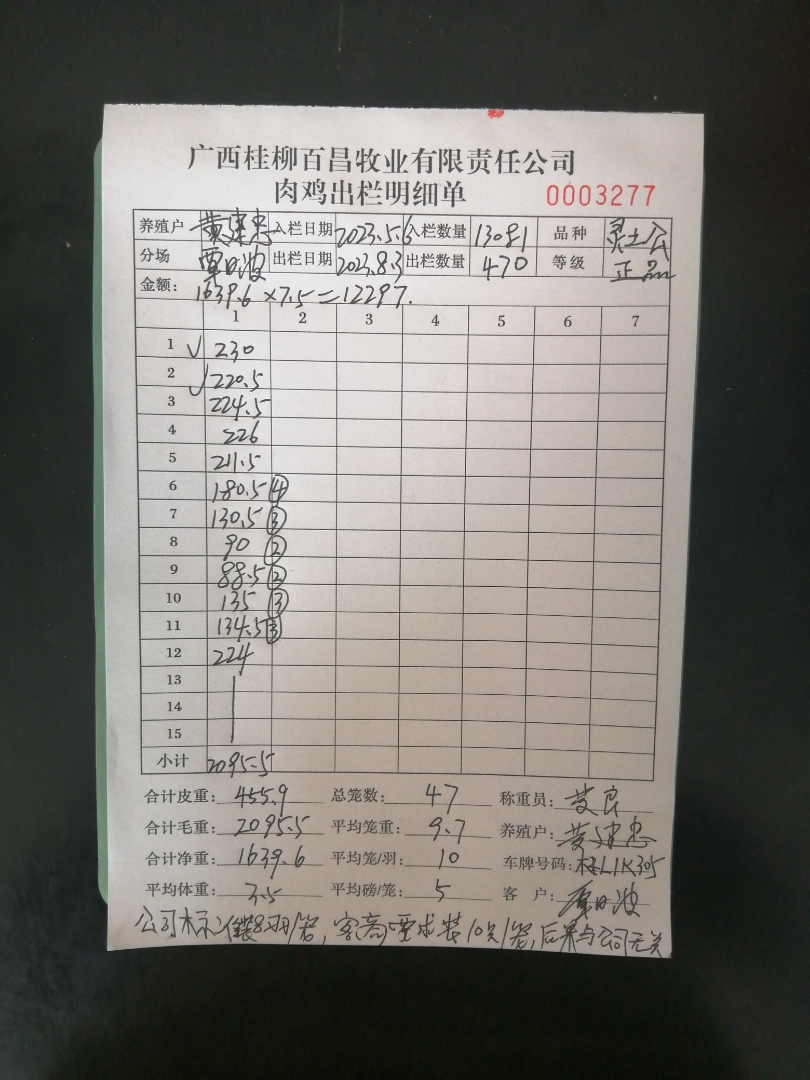 广西桂柳百昌牧业有限责任公司
肉鸡出栏明细单 0003277
养殖户 黄建忠 入栏日期 2023.5.6 入栏数量 13081 品种 灵土公
分场 覃日波 出栏日期 2023.8.3 出栏数量 470 等级 正品
金额: 1639.6×7.5=12297.
1 2 3 4 5 6 7
1 √ 230
2 √ 220.5
3 224.5
4 226
5 211.5
6 180.5 ④
7 130.5 ③
8 90 ②
9 88.5 ②
10 135 ③
11 134.5 ③
12 224
13
14
15
小计 2095.5
合计皮重: 455.9 总笼数: 47 称重员: 黄良
合计毛重: 2095.5 平均笼重: 9.7 养殖户: 黄建忠
合计净重: 1639.6 平均笼/羽: 10 车牌号码: 桂L1K305
平均体重: 3.5 平均磅/笼: 5 客户: 覃日波
公司标示装8羽/笼,客商要求装10只/笼,后果与公司无关